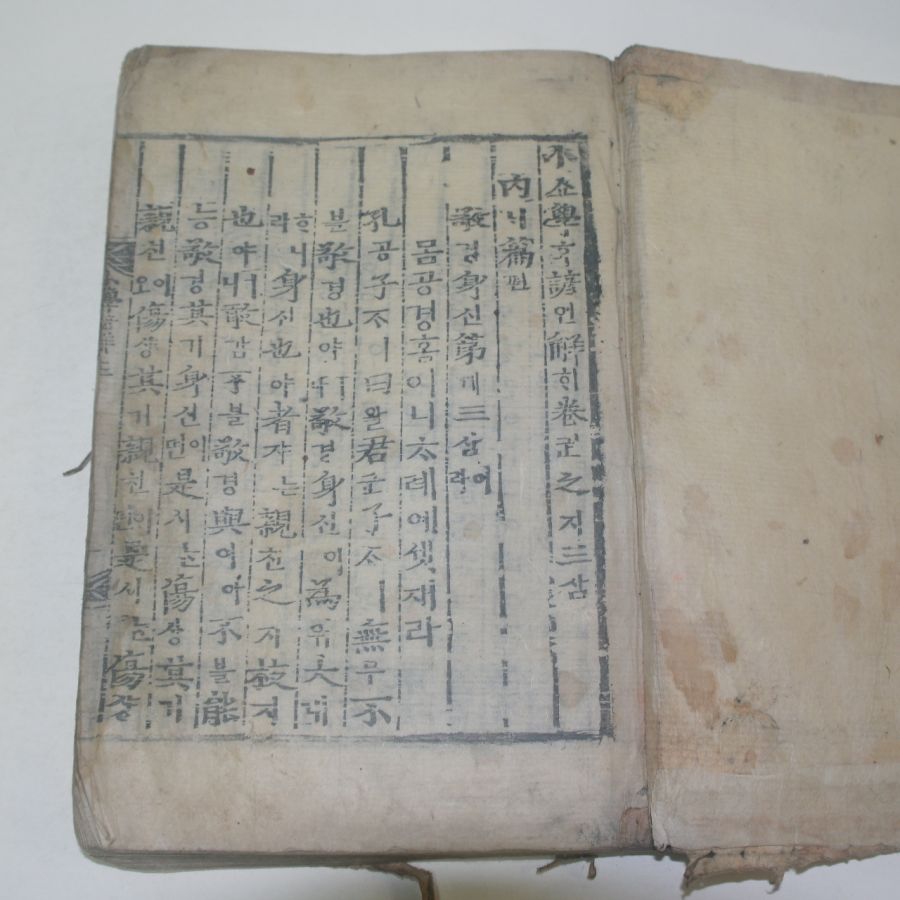 小쇼學ᄒᆞᆨ諺언解ᄒᆡ卷권之지三삼
內ᄂᆡ篇편
敬경身신第뎨三삼이라
몸공경홈이니 ᄎᆞ례예 셋재라
孔공子ᄌᆞㅣ曰왈君군子ᄌᆞㅣ無무不
블敬경也야ㅣ나敬경身신이爲위大대
ᄒᆞ니라身신也야者쟈ᄂᆞᆫ親친之지枝지
也야ㅣ니敢감不블敬경與여아不블能
능敬경其기身신이면是시ᄂᆞᆫ傷샹其기
親친이오傷샹其기親친이면是시ᄂᆞᆫ傷샹